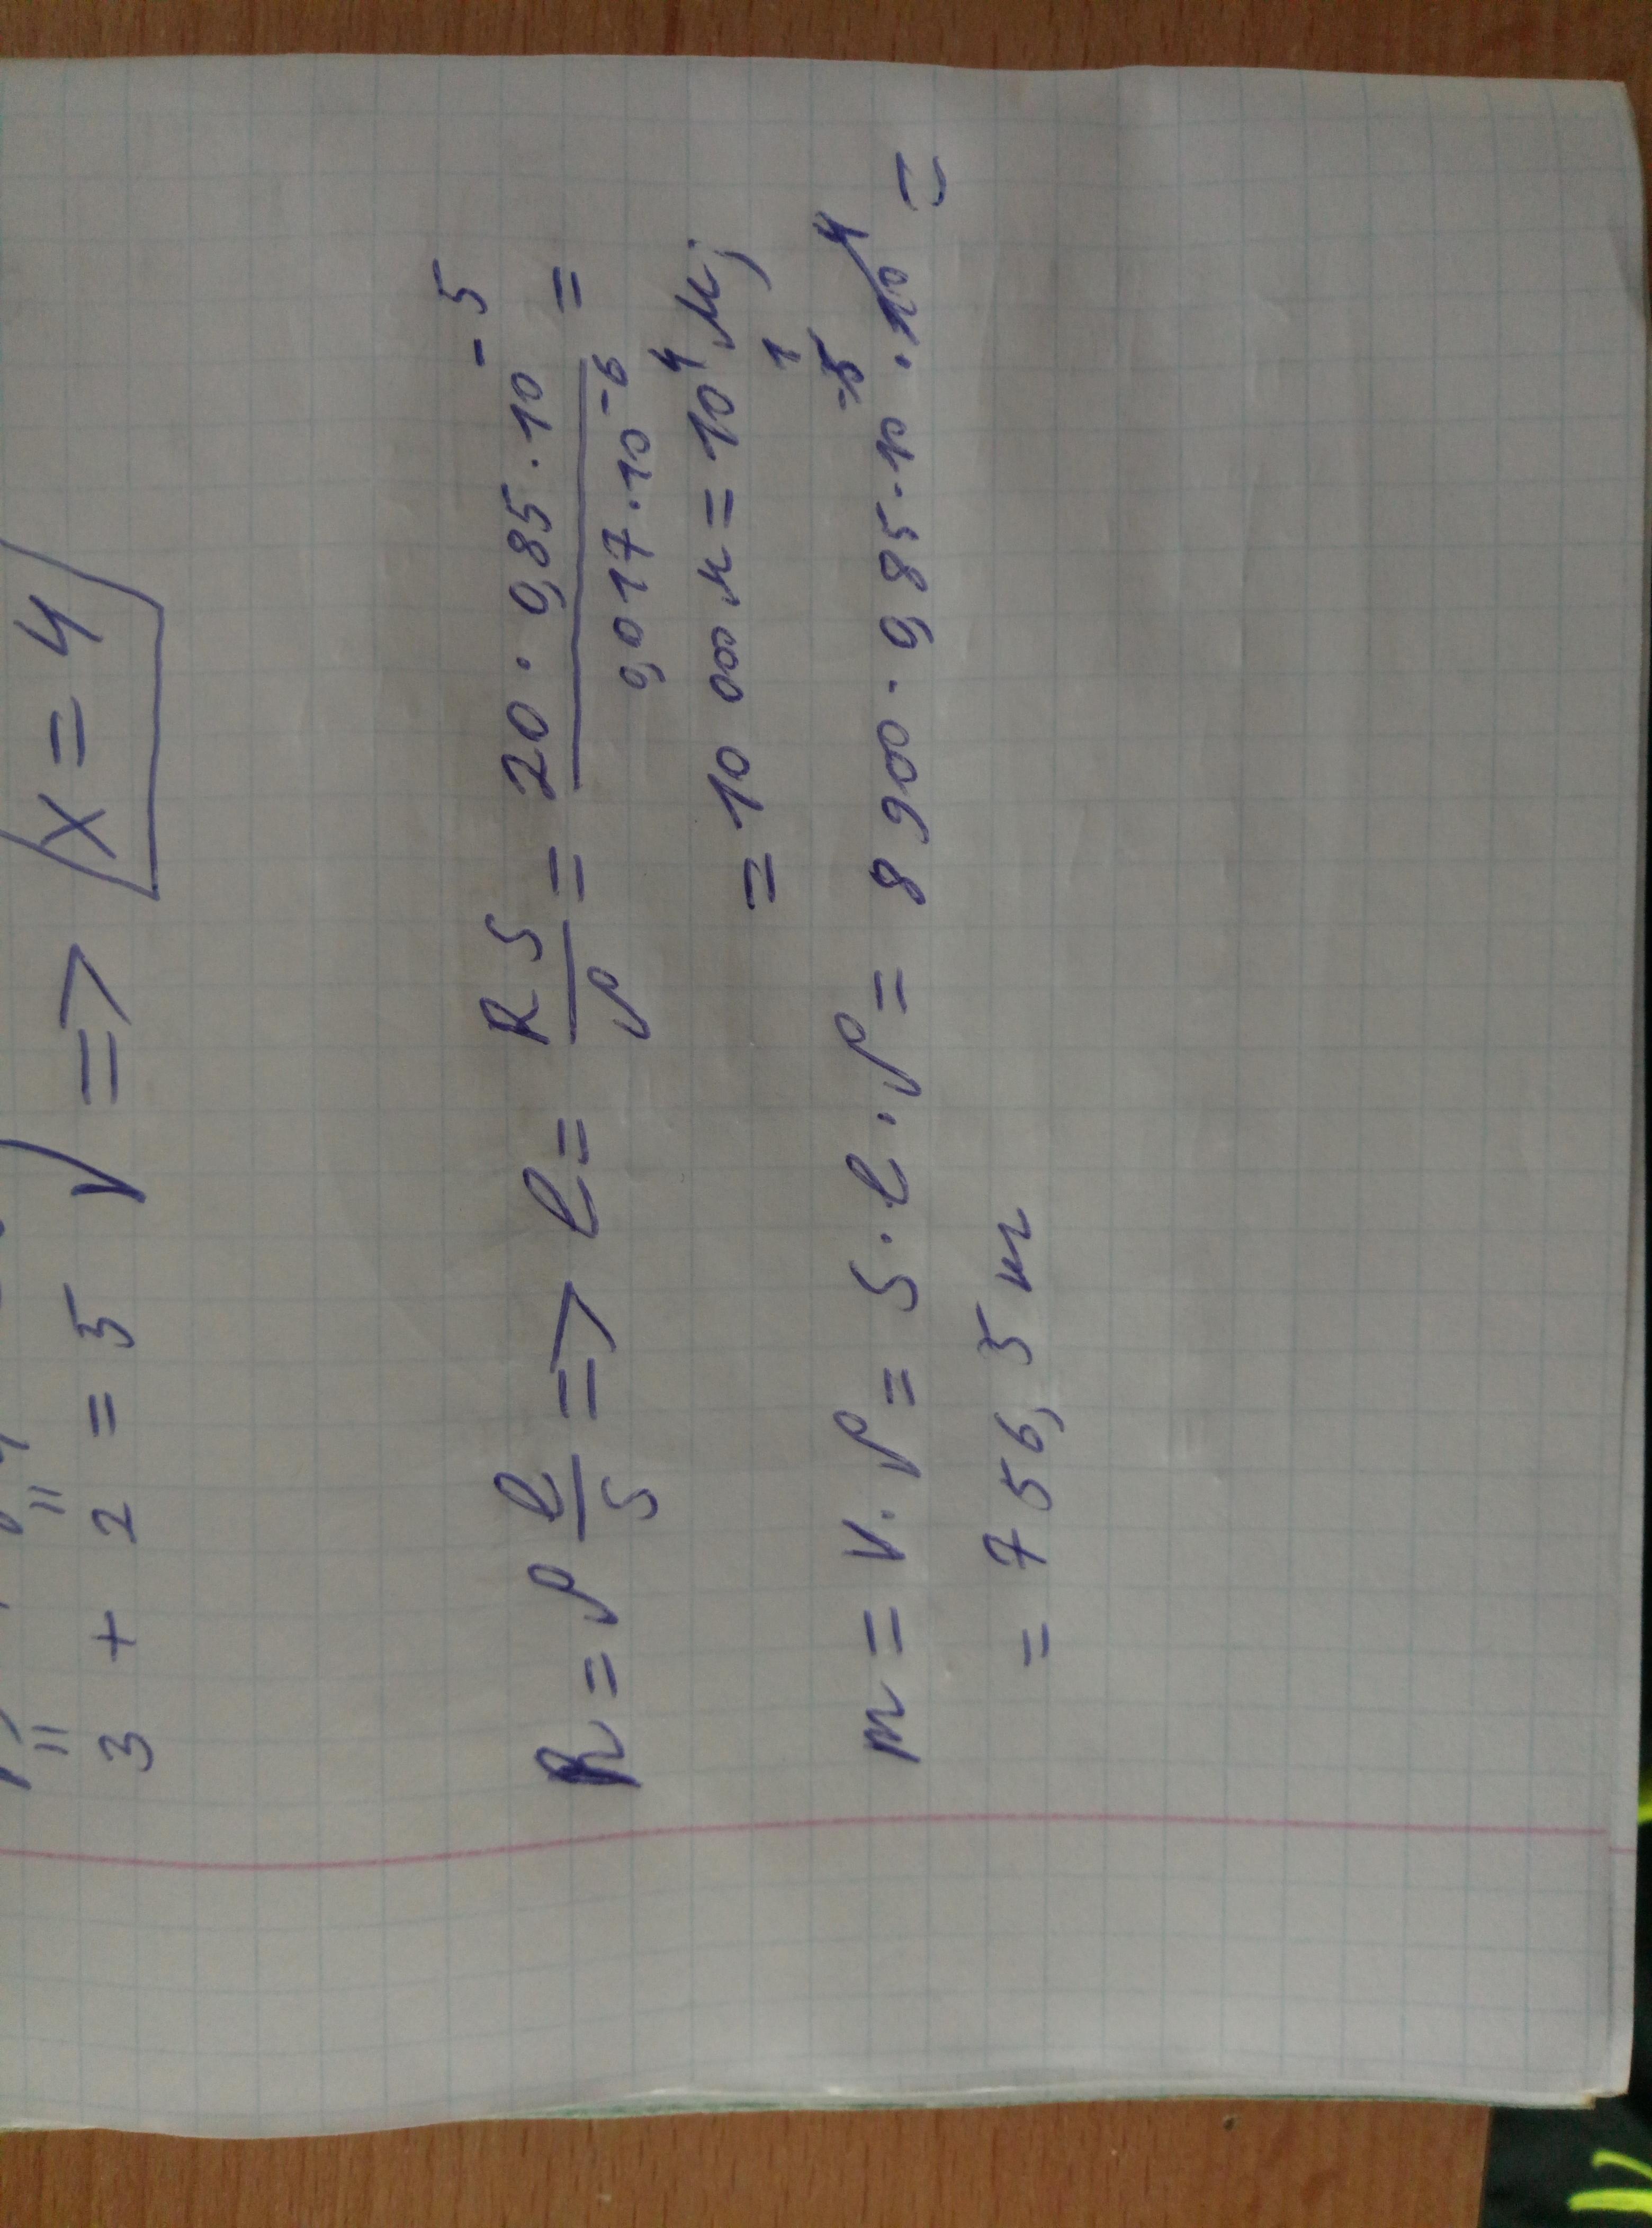 3 + 2 = 5 => x = 4
R = ρ l/S => l = RS/ρ = 20 · 0,85 · 10^-5 / 0,017 · 10^-6 =
= 10 000 м = 10^4 м;
m = V · ρ = S · l · ρ = 8 900 · 0,85 · 10^-5 · 10^4 =
= 756,5 м